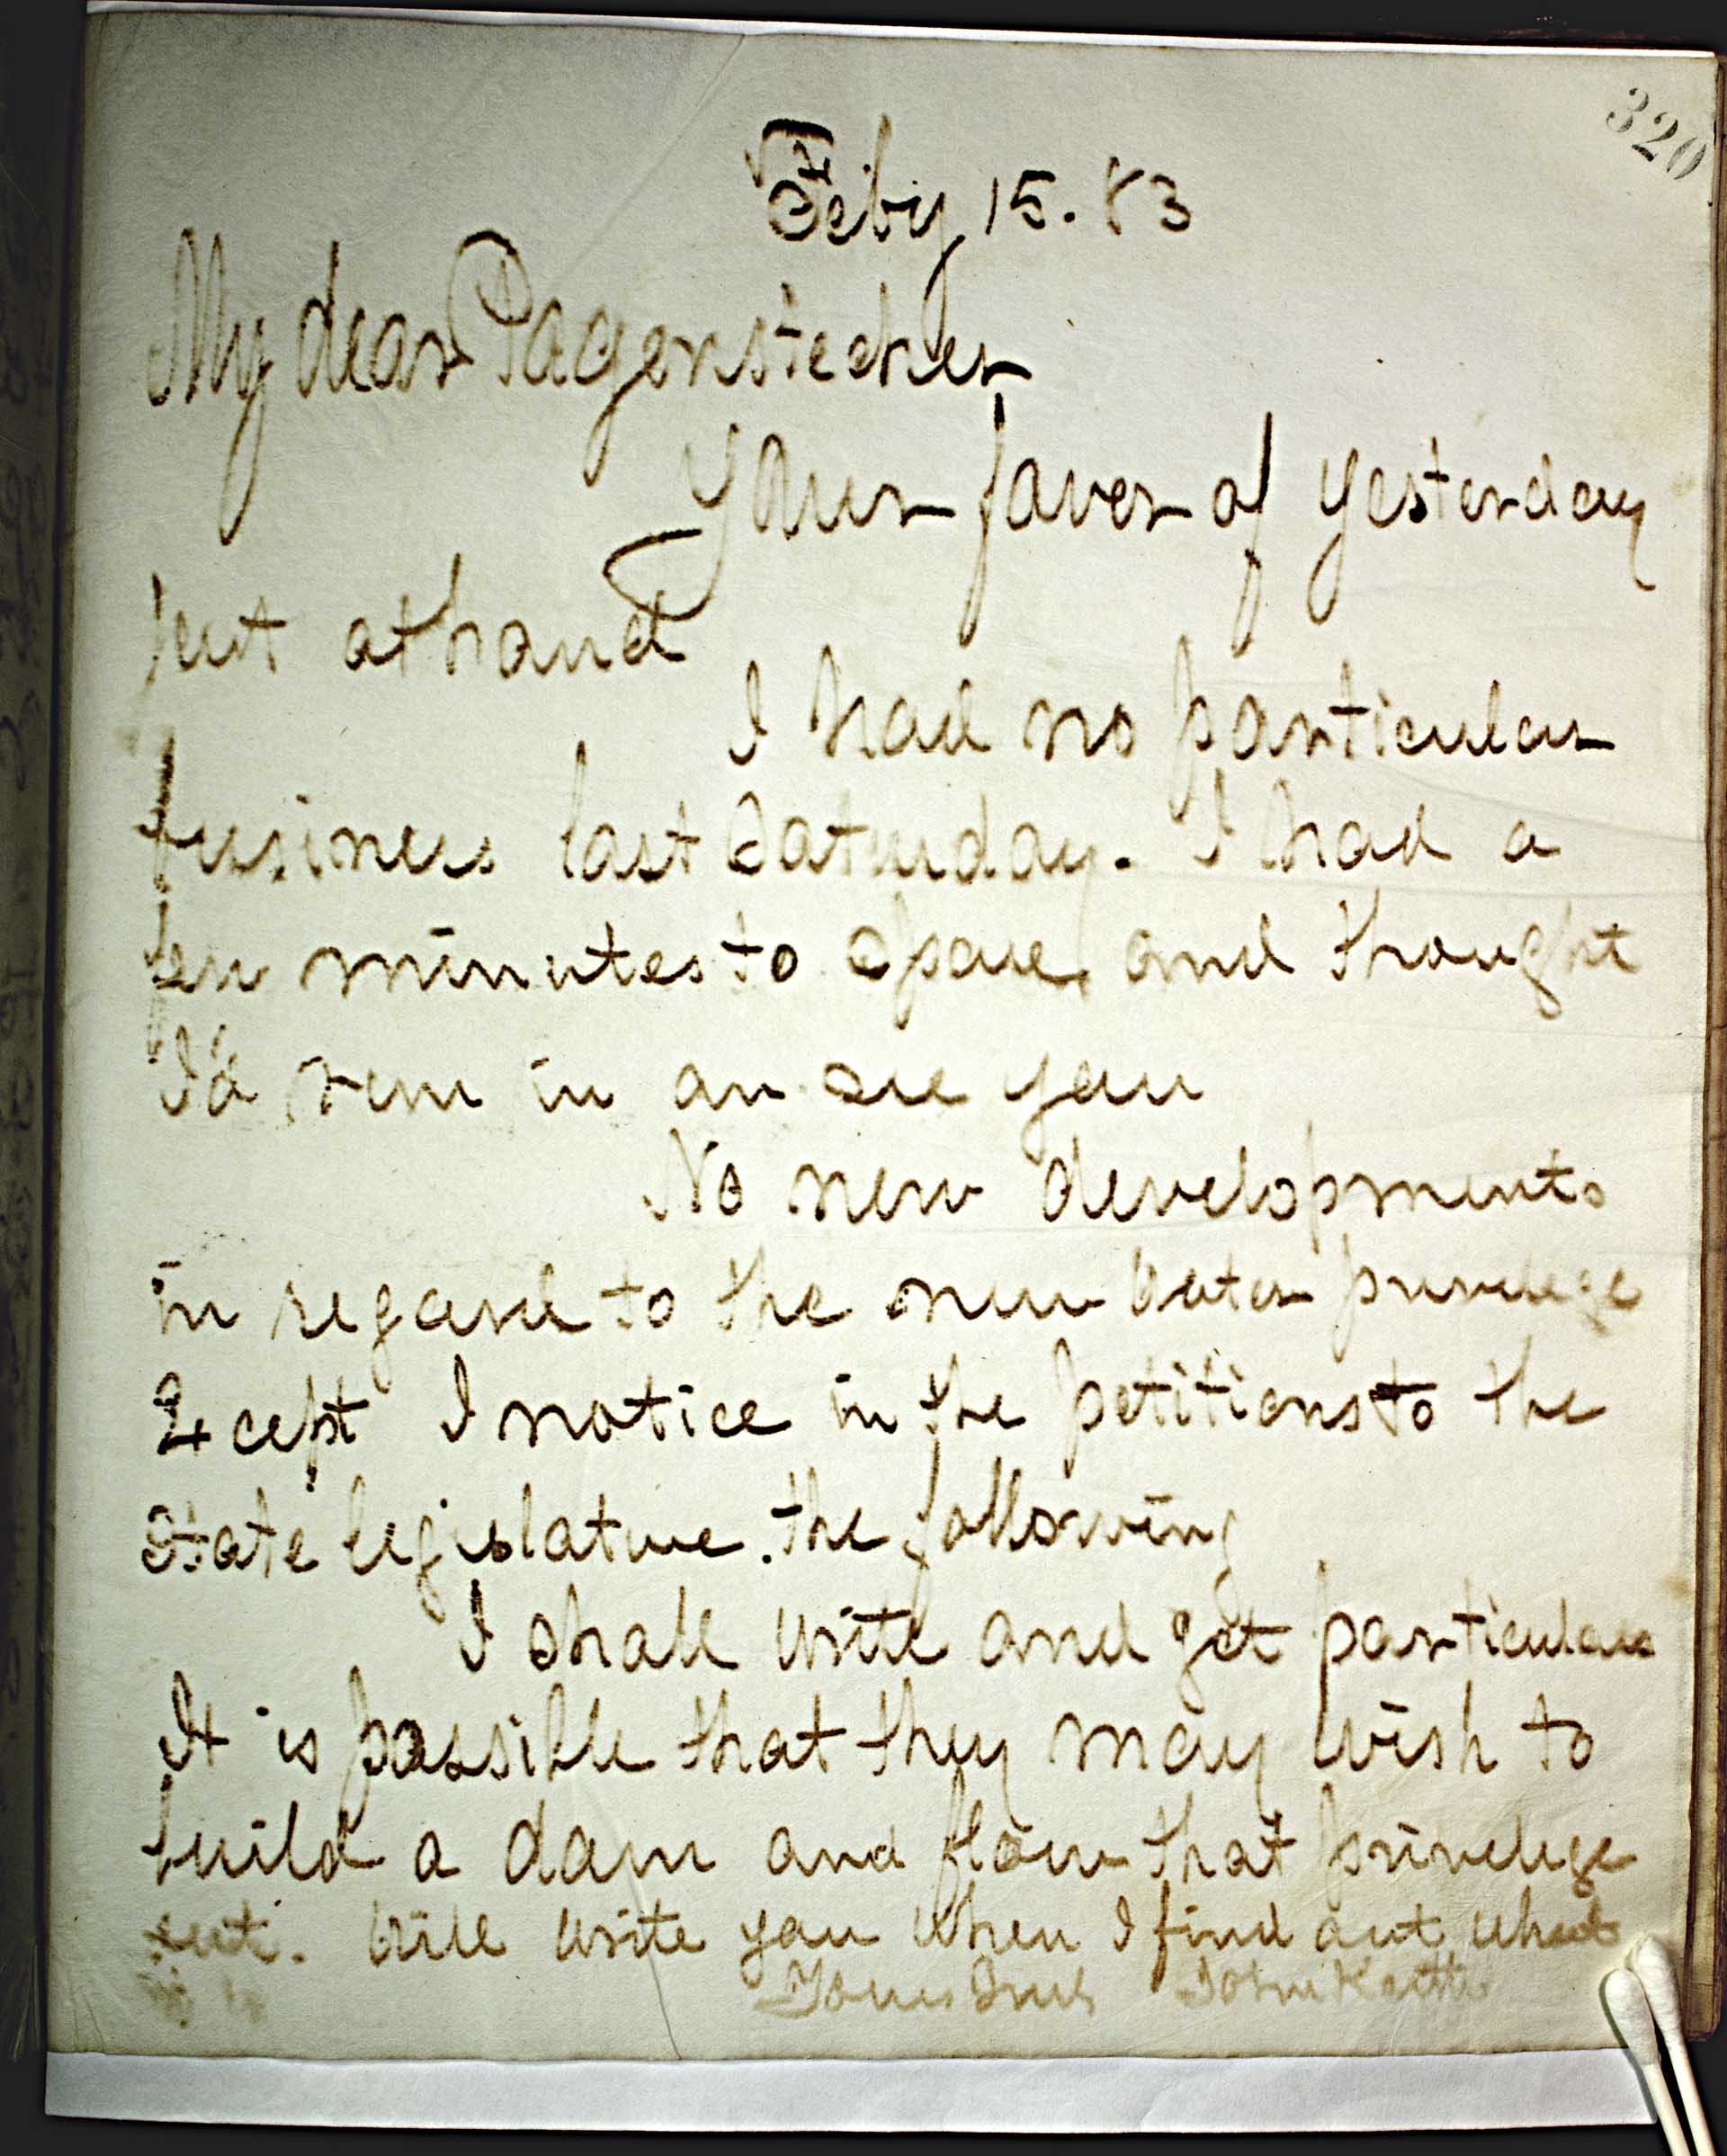 320
Feby 15. 83
My dear Pagenstecher
Your favor of yesterday
just at hand
I had no particular
business last Saturday. I had a
few minutes to spare and thought
I'd run in an see you
No new developments
in regard to the new water privelege
Except I notice in the petitions to the
State legislature. the following
I shall write and get particulars
It is possible that they may wish to
build a dam and flow that privelege
out. Will write you when I find out what
Yours Truly John Keith